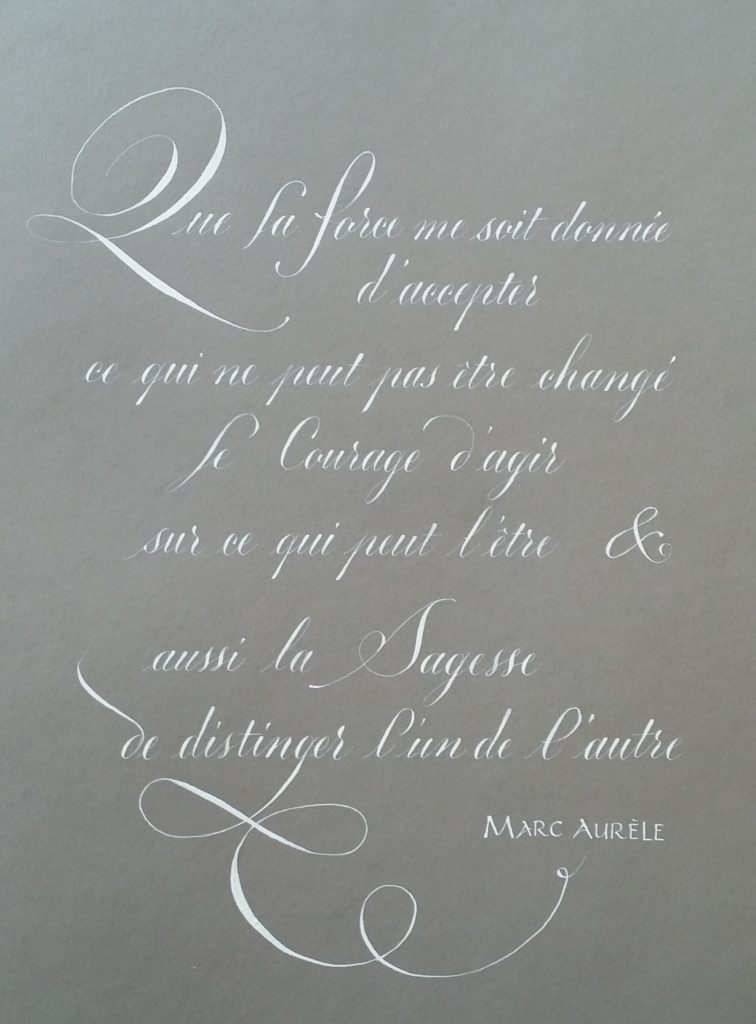 Que la force me soit donnée
d'accepter
ce qui ne peut pas être changé
le Courage d'agir
sur ce qui peut l'être &
aussi la Sagesse
de distinger l'un de l'autre
MARC AURÈLE